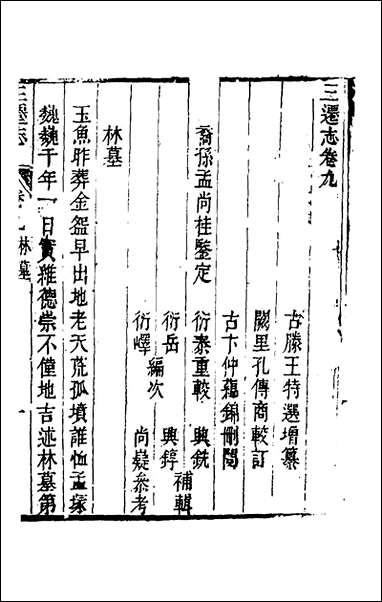 三遷志卷九
古滕王特選增纂
闕里孔傳商較訂
古卞仲蘊錦刪閱
裔孫孟尚桂鑒定
衍泰重較 興銑
衍岳 興錞
編次 補輯
衍嶧 尚疑參考
林墓
玉魚昨葬金盌早出地老天荒孤墳誰恤孟塚
巍巍千年一日實維德崇不僅地吉述林墓第
三遷志 卷九林墓 一